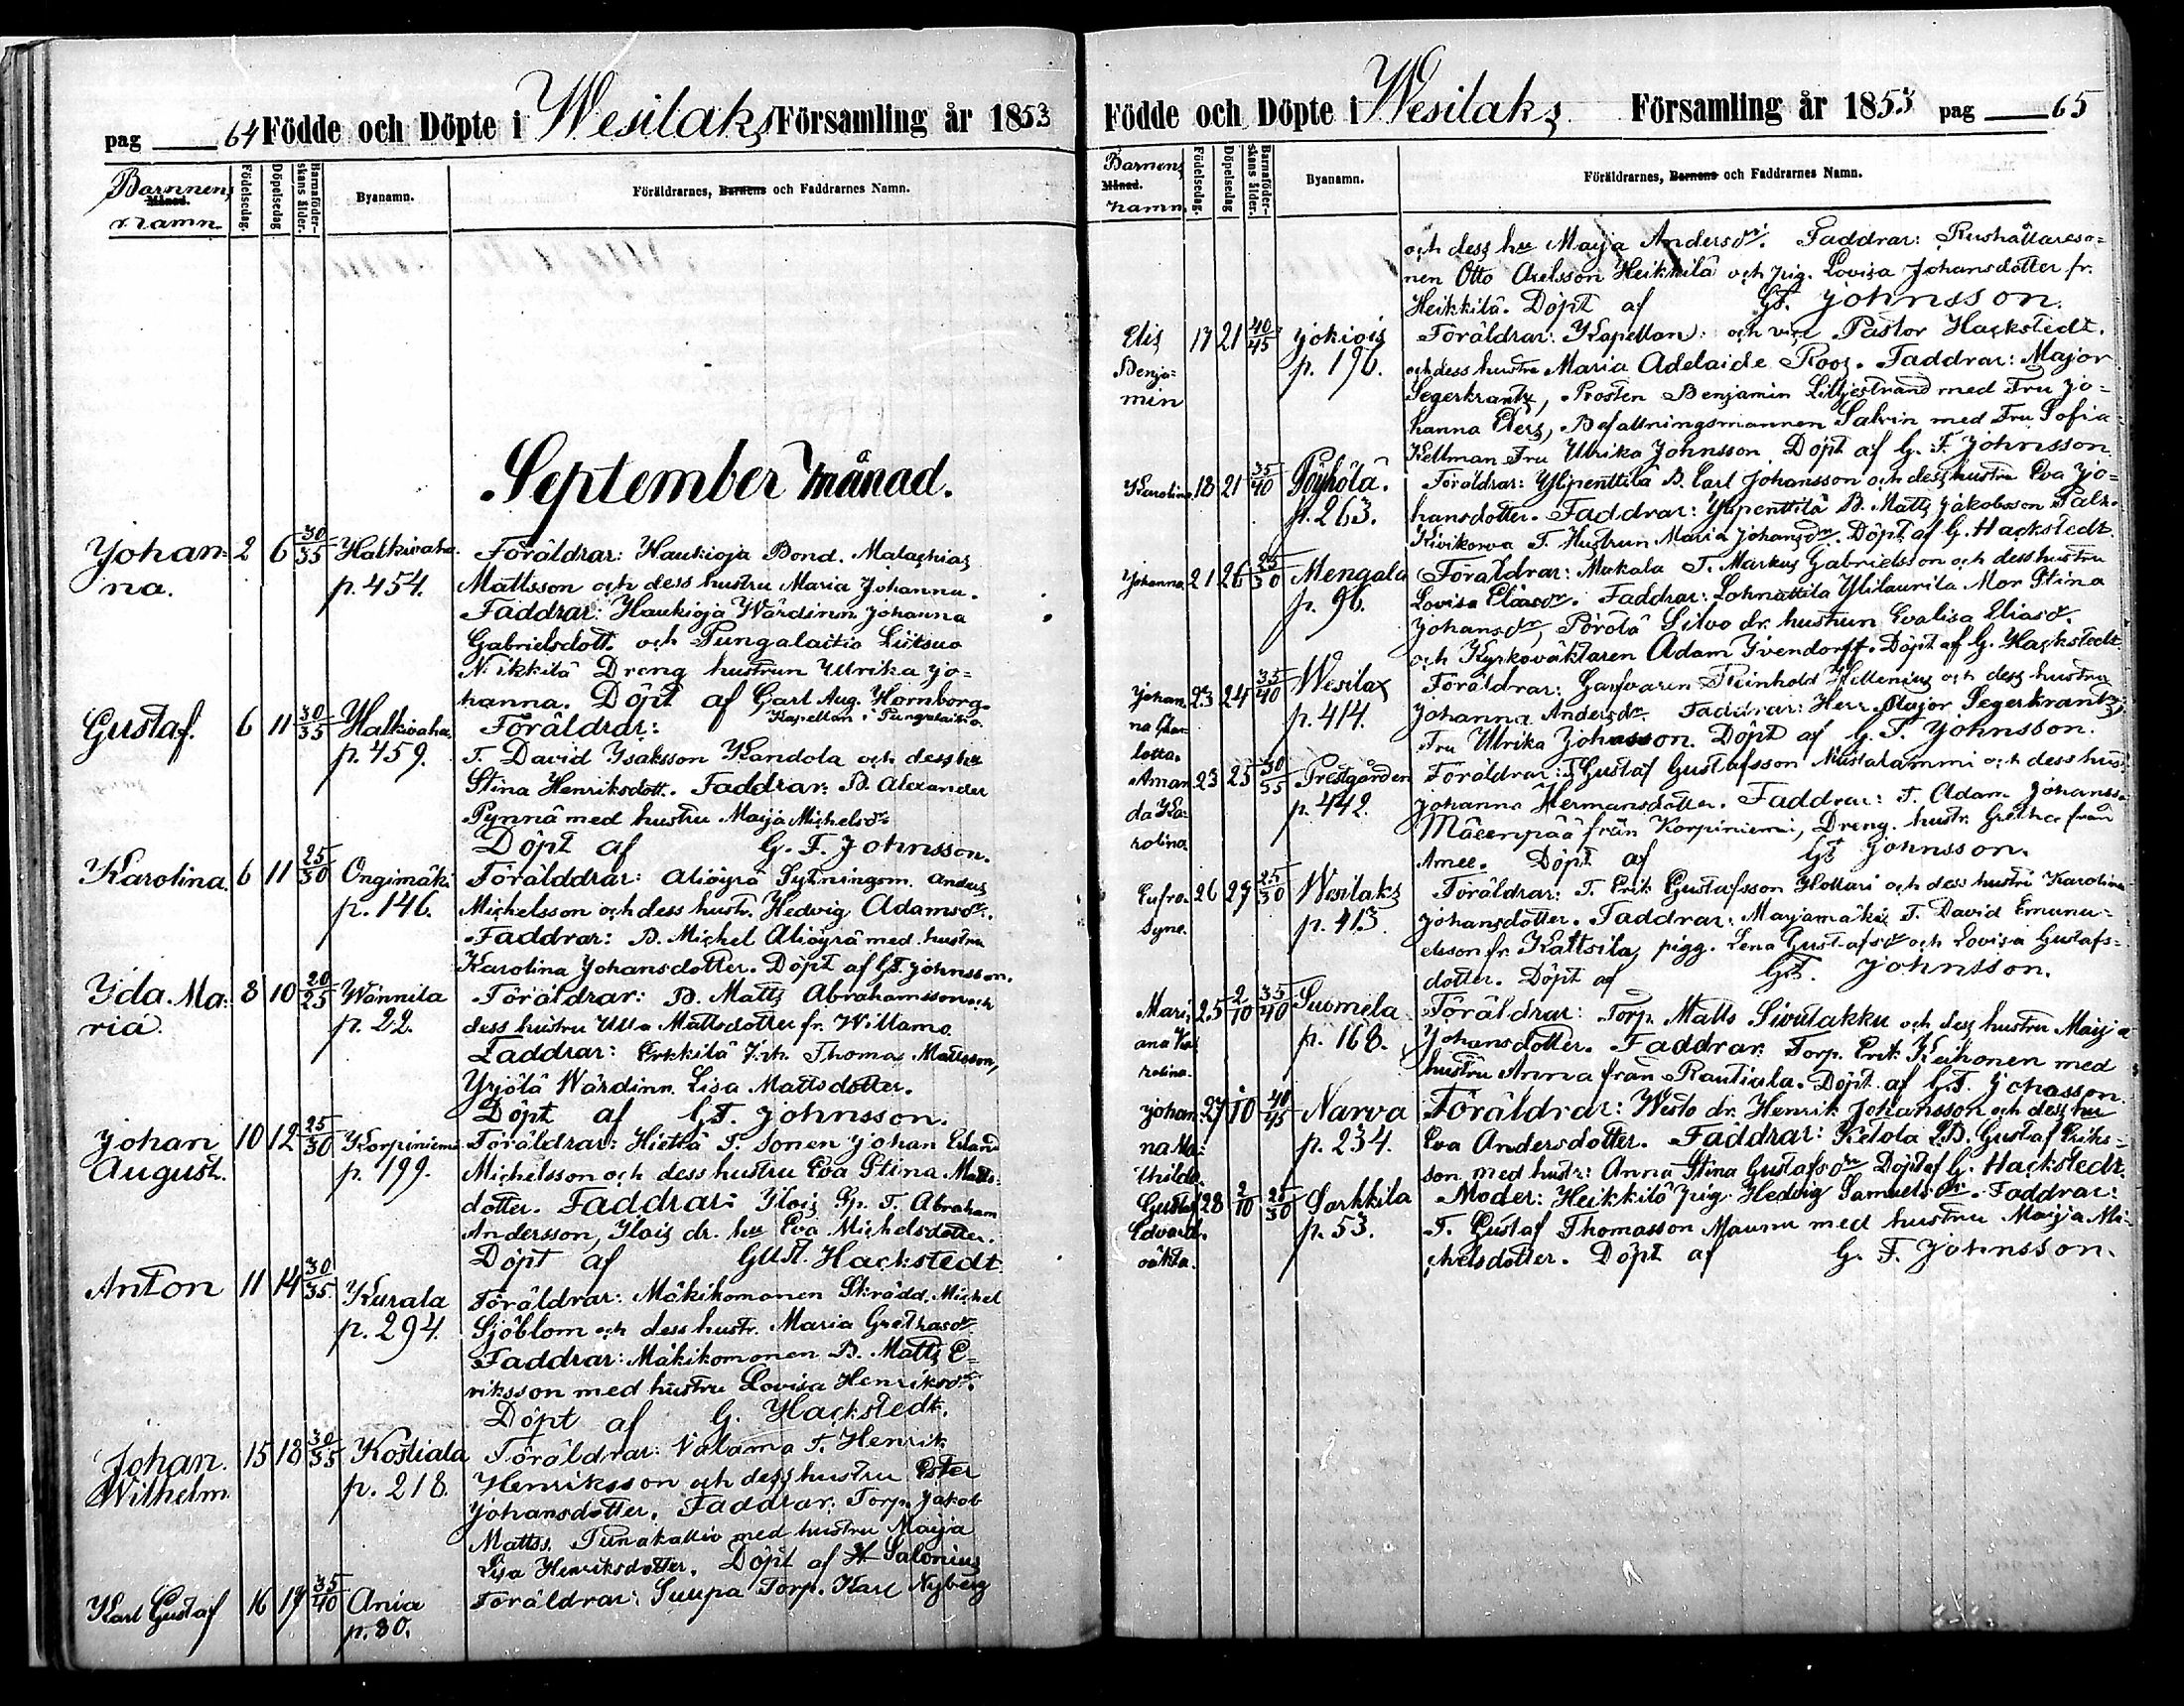 pag 64 Födde och Döpte i Wesilaks Församling år 1853
Barnens Månad. namn
Födelsedag.
Döpelsedag
Barnaföderskans ålder.
Byanamn.
Föräldrarnes, Barnens och Faddrarnes Namn.
September månad.
Johan= 2 6 30/35 Halkivaha. Föräldrar: Haukioja Bond. Malachias
na. p. 454. Mattsson och dess hustru Maria Johanna.
Faddrar: Haukioja Wärdinn Johanna
Gabrielsdott. och Pungalaitio Liitsuo
Nikkilä Dreng hustrun Ulrika Jo=
hanna. Döpt af Carl Aug. Hornborg.
Kapellan i Pungalaitio.
Gustaf. 6 11 30/35 Halkivaha. Föräldrar:
p. 459. T. David Isaksson Kandola och dess hu
Stina Henriksdott. Faddrar: B. Alexander
Pynnä med hustru Maija Michelsdr
Döpt af G. F. Johnsson.
Karolina. 6 11 25/30 Ongimäki Förälddrar: Alioyrä Sytningsm. Anders
p. 146. Michelsson och dess hustr. Hedvig Adamsdr.
Faddrar: B. Michel Alioyrä med hustru
Karolina Johansdotter. Döpt af G.F. Johnsson.
Ida Ma: 8 10 20/25 Wännila Föräldrar: B. Matts Abrahamsson och
ria. p. 22. dess hustru Ulla Mattsdotter fr. Willamo.
Faddrar: Erkkilä Thomas Mattsson,
Yrjölä Wärdinn. Lisa Mattsdotter.
Döpt af G.F. Johnsson.
Johan 10 12 25/30 Korpiniemi Föräldrar: Hietlä T. Sonen Johan Erland
August. p. 199. Michelsson och dess hustru Eva Stina Matts:
dotter. Faddrar: Ylois Sp. T. Abraham
Andersson, Ylois dr. hu Eva Michelsdotter.
Döpt af Gust. Hackstedt.
Anton 11 14 30/35 Kurala Föräldrar: Mäkikomonen Skrädd. Michel
p. 294. Sjöblom och dess hustr. Maria Grethasdr.
Faddrar: Mäkikomonen B. Matts E=
riksson med hustru Lovisa Henriksdr.
Döpt af G. Hackstedt.
Johan 15 18 30/35 Kostiala Föräldrar: Valama T. Henrik
Wilhelm. p. 218. Henriksson och dess hustru Ester
Johansdotter. Faddrar: Torp. Jakob
Mattss. Punakallio med hustru Maija
Lisa Henriksdotter. Döpt af H Salonius
Karl Gustaf 16 17 35/40 Ania Föräldrar: Suupa Torp. Karl Nyberg
p. 80.
Födde och Döpte i Wesilaks Församling år 1853 pag 65
Barnens Månad. namn.
Födelsedag.
Döpelsedag
Barnaföderskans ålder.
Byanamn.
Föräldrarnes, Barnens och Faddrarnes Namn.
och dess hu Maija Andersdr. Faddrar: Rushållareso=
nen Otto Axelsson Heikkilä och pig. Lovisa Johansdotter fr.
Heikkilä. Döpt af G.F. Johnsson.
Elis 17 21 40/45 Jokiois Föräldrar: Kapellan: och vice Pastor Hackstedt.
Benja= p. 196. och dess hustru Maria Adelaide Roos. Faddrar: Major
min Segerkrantz, Prosten Benjamin Liljestrand med Fru Jo=
hanna Elers, Befallningsmannen Salvin med Fru Sofia
Kellman Fru Ulrika Johnsson. Döpt af G. F. Johnsson.
Karolina 18 21 35/40 Pöyhölä. Föräldrar: Ylipenttilä B. Carl Johansson och dess hustru Eva Jo=
p. 263. hansdotter. Faddrar: Ylipenttilä B. Matts Jakobsson
Kivikorva T. Hustrun Maria Johansdr. Döpt af G. Hackstedt.
Johanna. 21 26 25/30 Mengala Föräldrar: Mukala T. Markus Gabrielsson och dess hustru
p. 96. Lovisa Eliasdr. Faddrar: Ylilaurila Mor Stina
Johansdr, Pörölä Silvo dr. hustrun Evalisa Eliasdr.
och Kyrkovaktaren Adam Ivendorff. Döpt af G. Hackstedt.
Johan 23 24 35/40 Wesilax Föräldrar: Garfvaren Reinhold Hellenius och dess hustru
na Char p. 414. Johanna Andersdr. Faddrar: Herr Major Segerkrantz,
lotta. Fru Ulrika Johnsson. Döpt af G. F. Johnsson.
Aman 23 25 30/35 Prestgården Föräldrar: T Gustaf Gustafsson Mustalammi och dess hus:
da Ka: p. 442. Johanna Hermansdotter. Faddrar: T. Adam Johansso=
rolina. Mäenpää från Korpiniemi, Dreng. hustr. Gretha från
Amee. Döpt af G.F. Johnsson.
Eufro. 26 27 25/30 Wesilaks Föräldrar: T. Erik Gustafsson Hollari och dess hustru Karolina
syne. p. 413. Johansdotter. Faddrar: Marjamäki T. David Emanu=
elsson fr. Kaltsila, pigg. Lena Gustafsdr och Lovisa Gustafs=
dotter. Döpt af G.F. Johnsson.
Mari 25 2/10 35/40 Suomela Föräldrar: Torp. Matts Sivulakku och dess hustru Maija
ana Ka p. 168. Johansdotter. Faddrar: Torp. Erik Keihonen med
rolina. hustru Anna från Rautiala. Döpt af G.F. Johnsson.
Johan 27 1/10 40/45 Narva Föräldrar: Westo dr. Henrik Johansson och dess hu
na Ma: p. 234. Eva Andersdotter. Faddrar: Ketola B. Gustaf Eriks=
thilda. son med hustr: Anna Stina Gustafsdr Döpt af G. Hackstedt.
Gustaf 28 2/10 25/30 Sarkkila Moder: Heikkilä pig. Hedvig Samuelsdr. Faddrar:
Edvard. p. 53. T. Gustaf Thomasson Maunu med hustru Maija Mi=
oäkta. chelsdotter. Döpt af G. F. Johnsson.